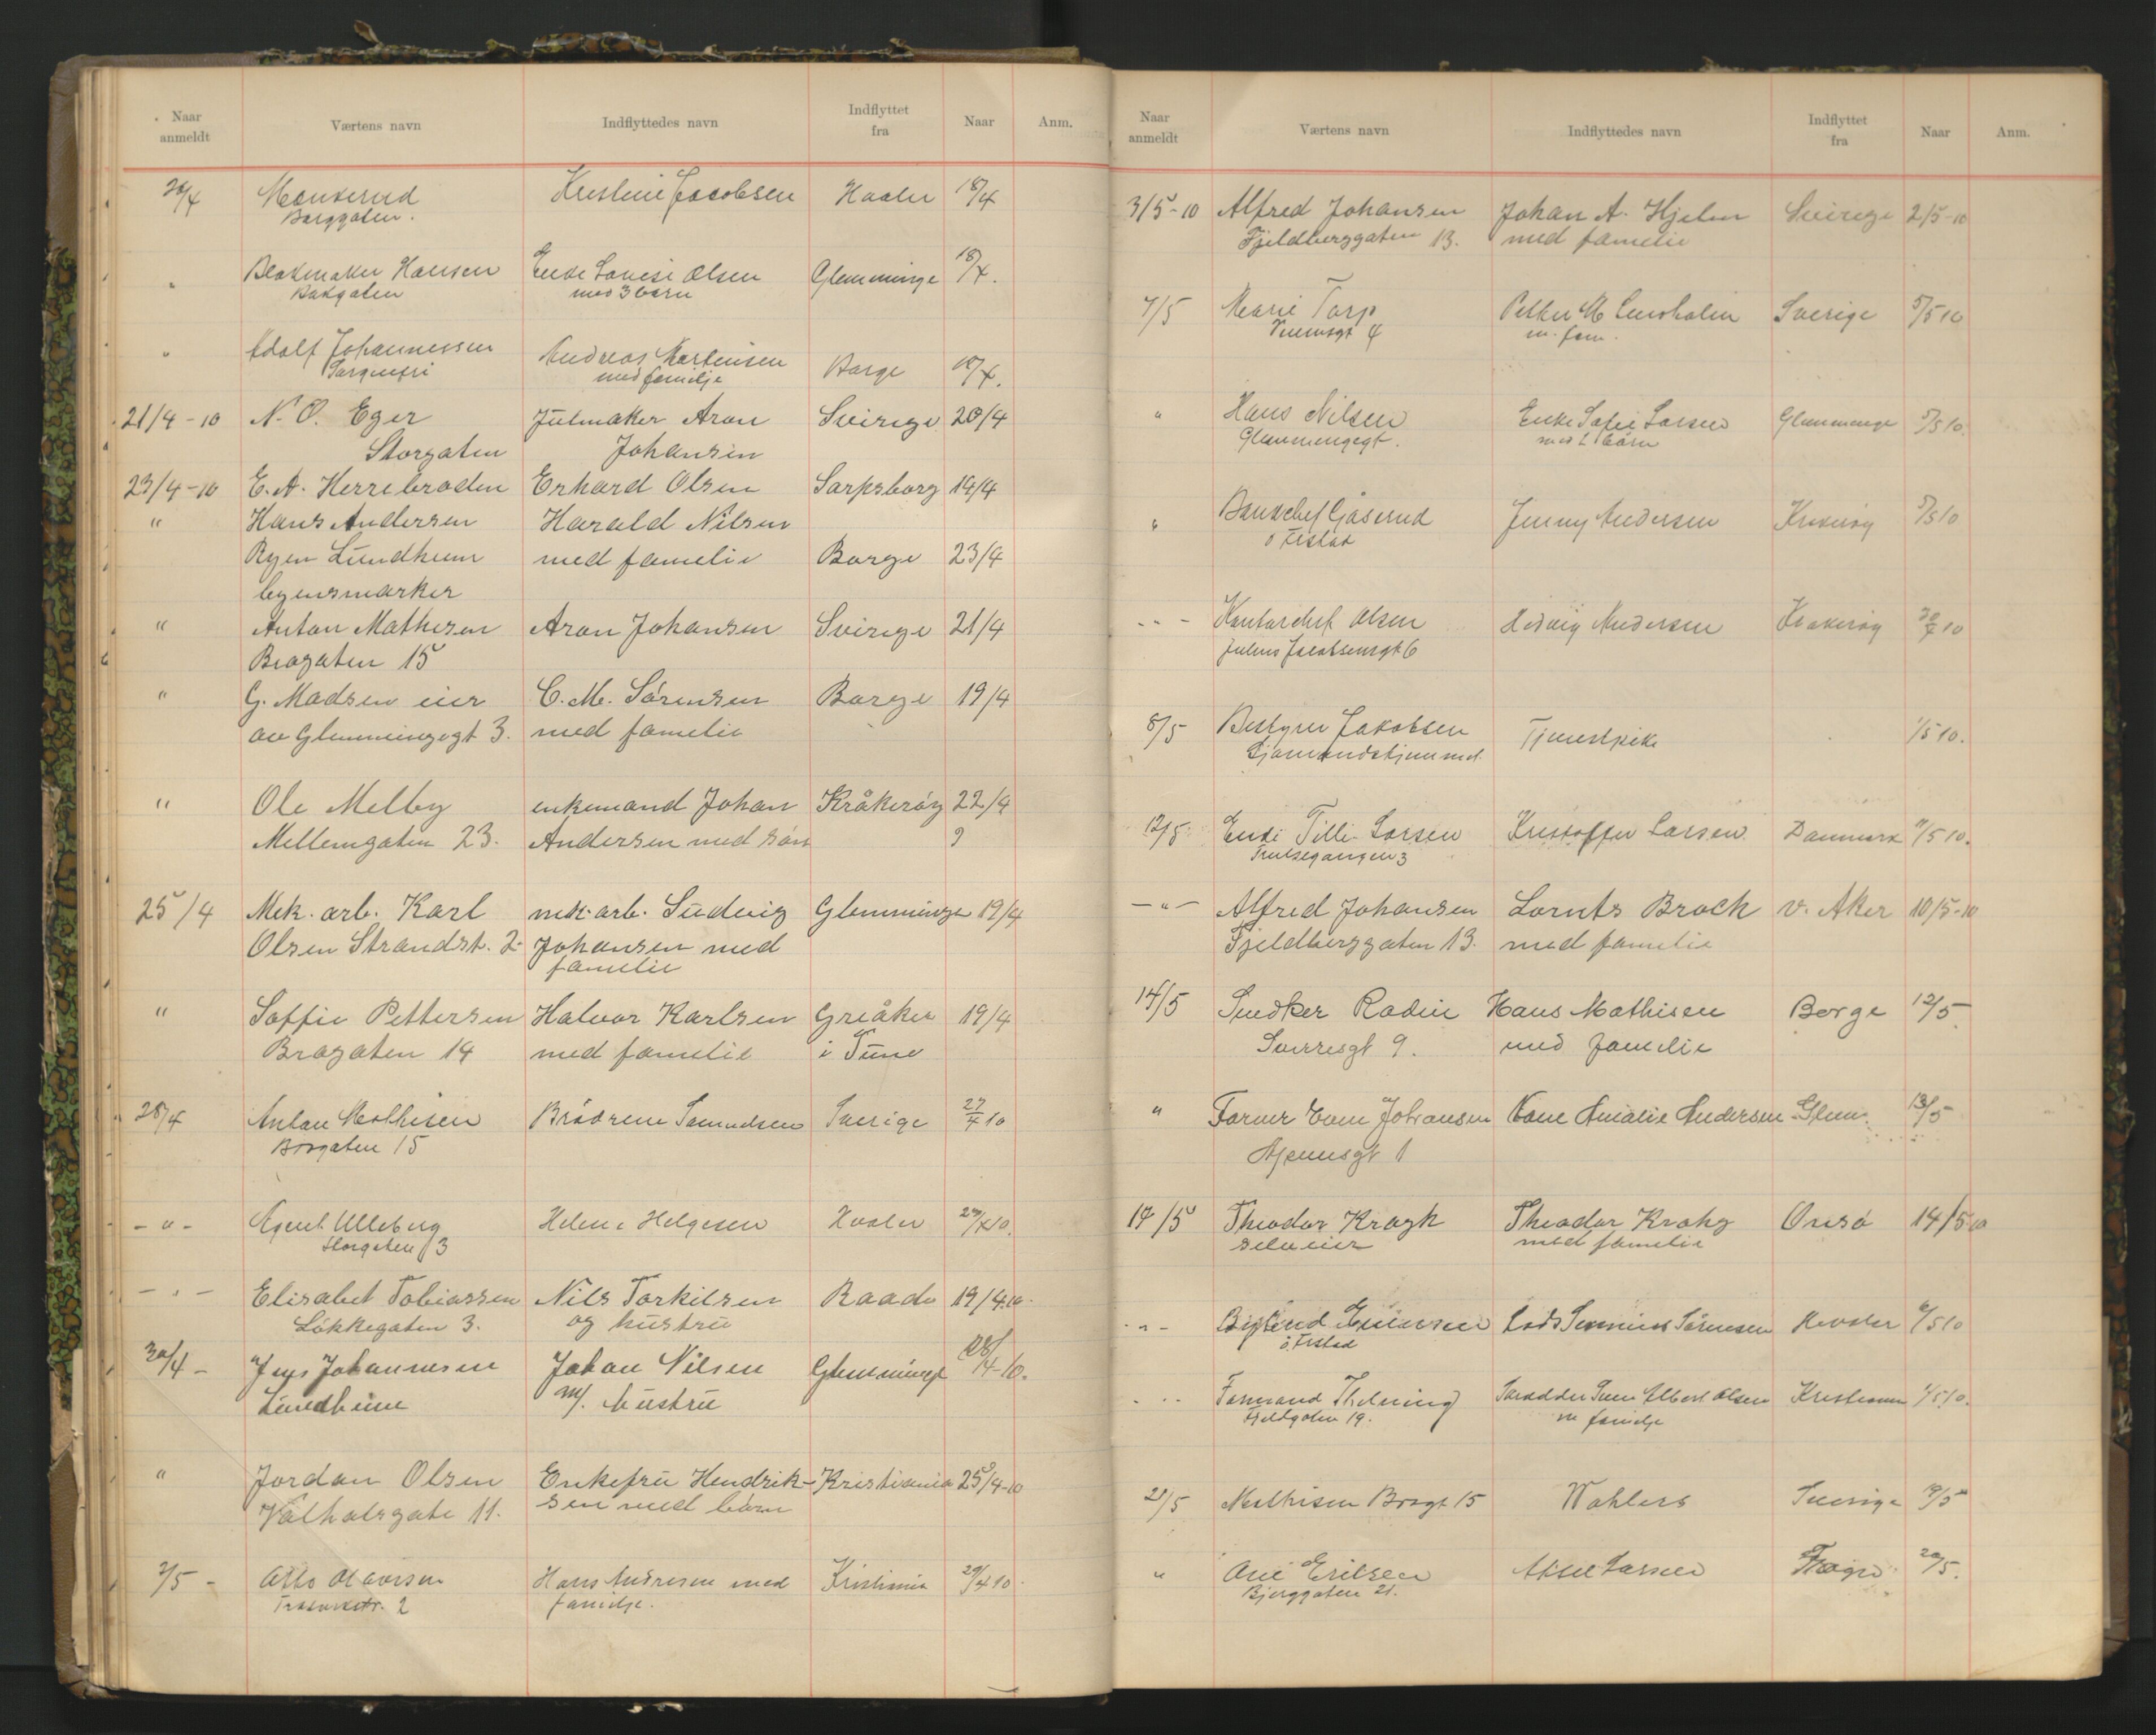 Naar anmeldt | Værtens navn | Indflyttedes navn | Indflyttet fra | Naar | Anm.
20/4 | Monserud | Kristine Jacobsen | Hvaler | 18/4
Borggaten.
" | Hansen | Enke Lovise Olsen | Glemminge | 18/4.
Bakgaten | med 3 børn
" | Adolf Johannessen | Andreas Martinsen | Borge | 19/4.
Sorgenfri | med familje
21/4-10 | N. O. Eger | Julmaker Aron | Sverige | 20/4
Storgaten | Johansen
23/4-10 | E. A. Herrebrøden | Erhard Olsen | Sarpsborg | 19/4
" | Hans Andersen | Harald Nilsen
Ryen Lundheim | med familie | Borge | 23/4
byensmarker
" | Anton Mathisen | Aron Johansen | Sverige | 21/4
Brogaten 15
" | G. Madsen eier | C. M. Sørensen | Borge | 19/4
av Glemmingegt 3. | med familie
" | Ole Melby | enkemand Johan | Kråkerøy | 22/4
Mellemgaten 23. | Andersen med søn | 9
25/4 | Mek. arb. Karl | mek. arb. Ludvig | Glemminge | 19/4
Olsen Strandst. 2 | Johansen med
familie
" | Soffie Pettersen | Halvor Karlsen | Greåker | 19/4
Brogaten 14 | med familie | i Tune
28/4 | Anton Mathisen | Brødrene Samuelsen | Sverige | 27/4 10
Brogaten 15
- " - | Agent Ulleberg | Helene Helgesen | Hvaler | 27/4 10.
Storgaten 13
- " - | Elisabet Tobiassen | Nils Torkilsen | Raade | 19/4 10.
Løkkegaten 3. | og hustru
30/4 - | Jens Johannesen | Johan Nilsen | Glemminge | 28/4-10.
Lundheim | m/. hustru
" | Jordan Olsen | Enkefru Hendrik- | Kristiania | 25/4-10
Valhalsgate 11. | sen med børn
2/5 - | Otto Olavesen | Hans Andresen med | Kristiania | 29/4 10.
2 | familje.
Naar anmeldt | Værtens navn | Indflyttedes navn | Indflyttet fra | Naar | Anm.
3/5-10 | Alfred Johansen | Johan A. Hjelm | Sverige | 2/5-10
Fjeldberggaten 13. | med familie
7/5 | Marie Torp | Petter M | Sverige | 5/5 10
4 | m. fam.
" | Hans Nilsen | Enke Sofie Larsen | Glemminge | 5/5 10.
Glemmengegt. | med 2 børn
" | Bankchef Gjøserud | Jenny Andersen | Krakerøy | 5/5 10
ø Tistad
- - - | Kontorchef Olsen | Hedvig Andersen | Krakerøy | 30/4 10
Julius Jacobsensgt 6
8/5 | Bestyrer Jakobsen | Tjenestpike | 1/5 10.
Sjømandshjemmet.
12/5 | Enke Tilli Larsen | Kristoffer Larsen | Danmark | 11/5 10.
Trulsegangen 3
- " - | Alfred Johansen | Lornts Brock | V. Aker | 10/5-10
Fjeldberggaten 13. | med familie
14/5 | Snedker Rodin | Hans Mathisen | Borge | 12/5
Sverresgt 9. | med familie
" | Former Tom Johansen | Tom Amalie Andersen | Glem. | 13/5
Apenesgt 1
14/5 | Theodor Kragh | Theodor Krohg | Onsø | 14/5 10
selveier | med familie
- " - | Lods Severinus Sørensen | Hvaler | 6/5 10
ø. Tistad
- - - | Formand Thelning | Elbert Olsen | Kristiania | 1/5 10.
Fjeldgaten 19. | m familje
21/5 | Mathisen Brogt 15 | Wahlers | Sverige | 19/5
" | Erilsen | Larsen | 20/5.
Bjerggaten 21.